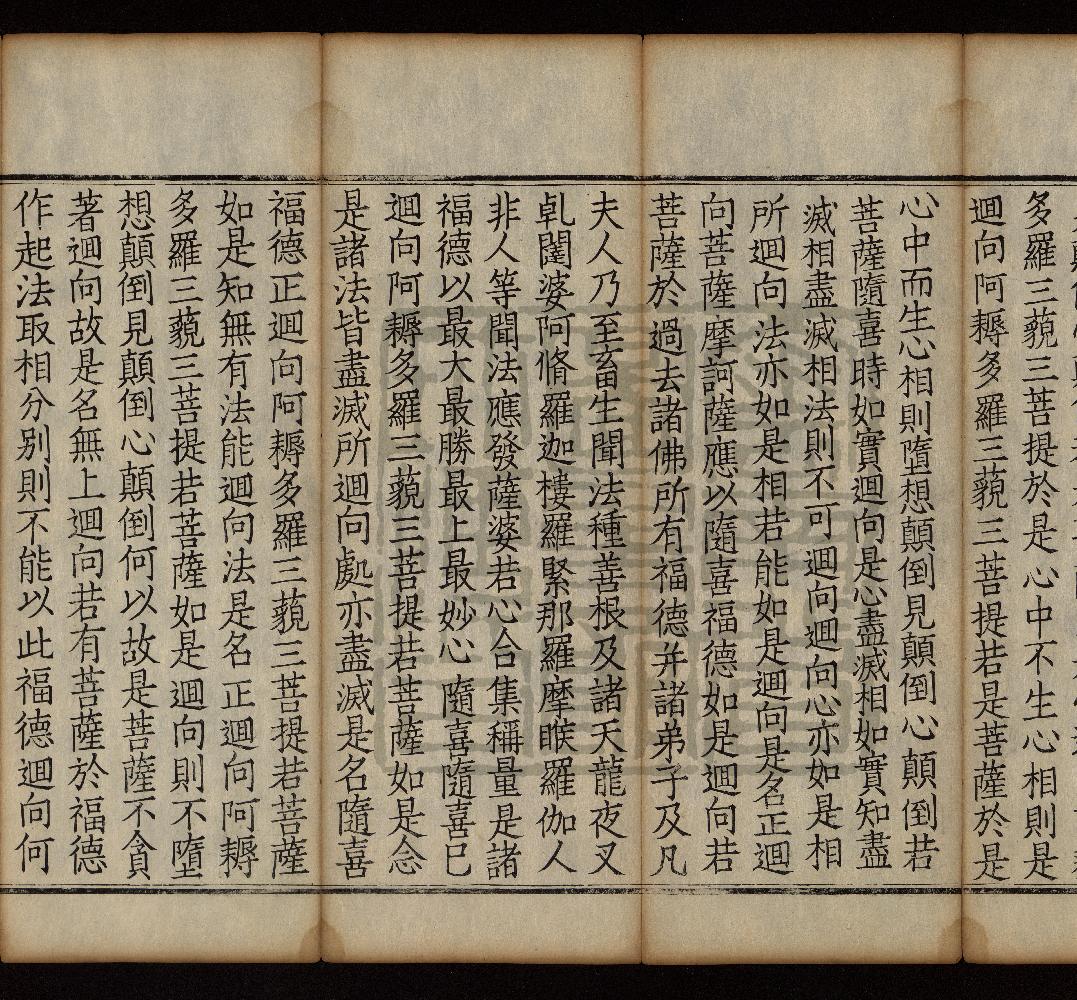 多羅三藐三菩提於是心中不生心相則是
迴向阿耨多羅三藐三菩提若是菩薩於是
心中而生心相則墮想顛倒見顛倒心顛倒若
菩薩隨喜時如實迴向是心盡滅相如實知盡
滅相盡滅相法則不可迴向迴向心亦如是相
所迴向法亦如是相若能如是迴向是名正迴
向菩薩摩訶薩應以隨喜福德如是迴向若
菩薩於過去諸佛所有福德并諸弟子及凡
夫人乃至畜生聞法種善根及諸天龍夜叉
乹闥婆阿脩羅迦樓羅緊那羅摩睺羅伽人
非人等聞法應發薩婆若心合集稱量是諸
福德以最大最勝最上最妙心隨喜隨喜已
迴向阿耨多羅三藐三菩提若菩薩如是念
是諸法皆盡滅所迴向處亦盡滅是名隨喜
福德正迴向阿耨多羅三藐三菩提若菩薩
如是知無有法能迴向法是名正迴向阿耨
多羅三藐三菩提若菩薩如是迴向則不墮
想顛倒見顛倒心顛倒何以故是菩薩不貪
著迴向故是名無上迴向若有菩薩於福德
作起法取相分別則不能以此福德迴向何